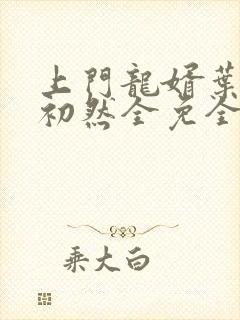 上門龍婿葉
初然全免全
乘大白